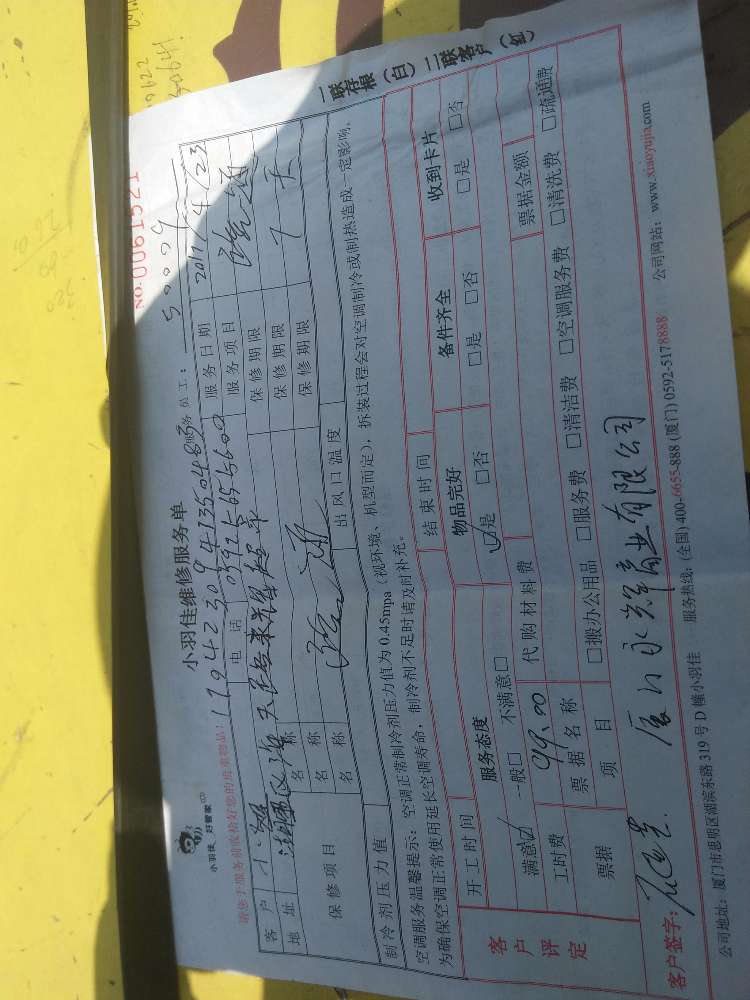 NO.0061521
小羽佳维修服务单
小羽佳，好管家
请您于服务前收捡好您的贵重物品！
服务员工： 50009
客户 电话 服务日期 2017/4/23
地址 服务项目
保修项目 名称 保修期限
名称 保修期限 7天
名称 保修期限
制冷剂压力值 出风口温度
空调服务温馨提示：空调正常制冷剂压力值为0.45mpa（视环境、机型而定），拆装过程会对空调制冷或制热造成一定影响，
为确保空调正常使用延长空调寿命，制冷剂不足时请及时补充。
一联存根（白）二联客户（红）
客户评定 开工时间 结束时间
服务态度 物品完好 备件齐全 收到卡片
满意☑ 一般□ 不满意□ ☑是 □否 □是 □否 □是 □否
工时费 99.00 代购材料费
票据 票据名称 票据金额
项目 □搬办公用品 □服务费 □清洁费 □空调服务费 □清洗费 □疏通费
客户签字： 永辉商业有限公司
公司地址：厦门市思明区湖滨东路319号D幢小羽佳 服务热线：(全国) 400-6655-888 (厦门) 0592-5178888 公司网站：www.xiaoyujia.com